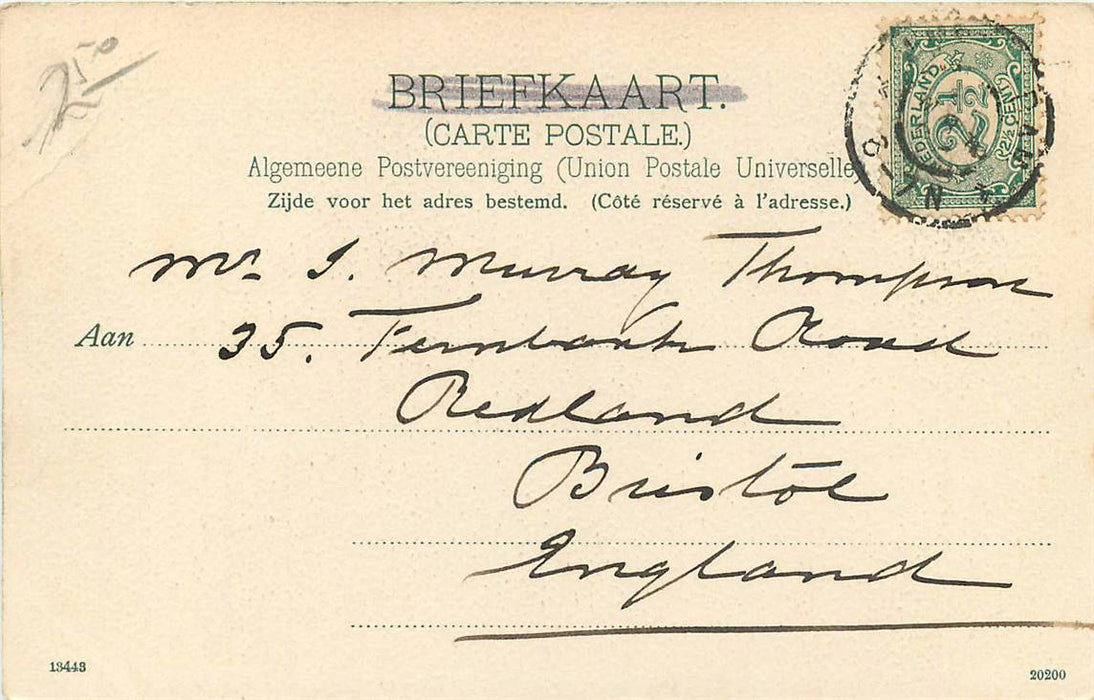 2.50
BRIEFKAART.
(CARTE POSTALE.)
Algemeene Postvereeniging (Union Postale Universelle)
Zijde voor het adres bestemd. (Côté réservé à l'adresse.)
NEDERLAND
2½
(2½ CENT)
Mr. J. Murray Thompson
Aan 35. Fernbank Road
Redland
Bristol
England
13443
20200